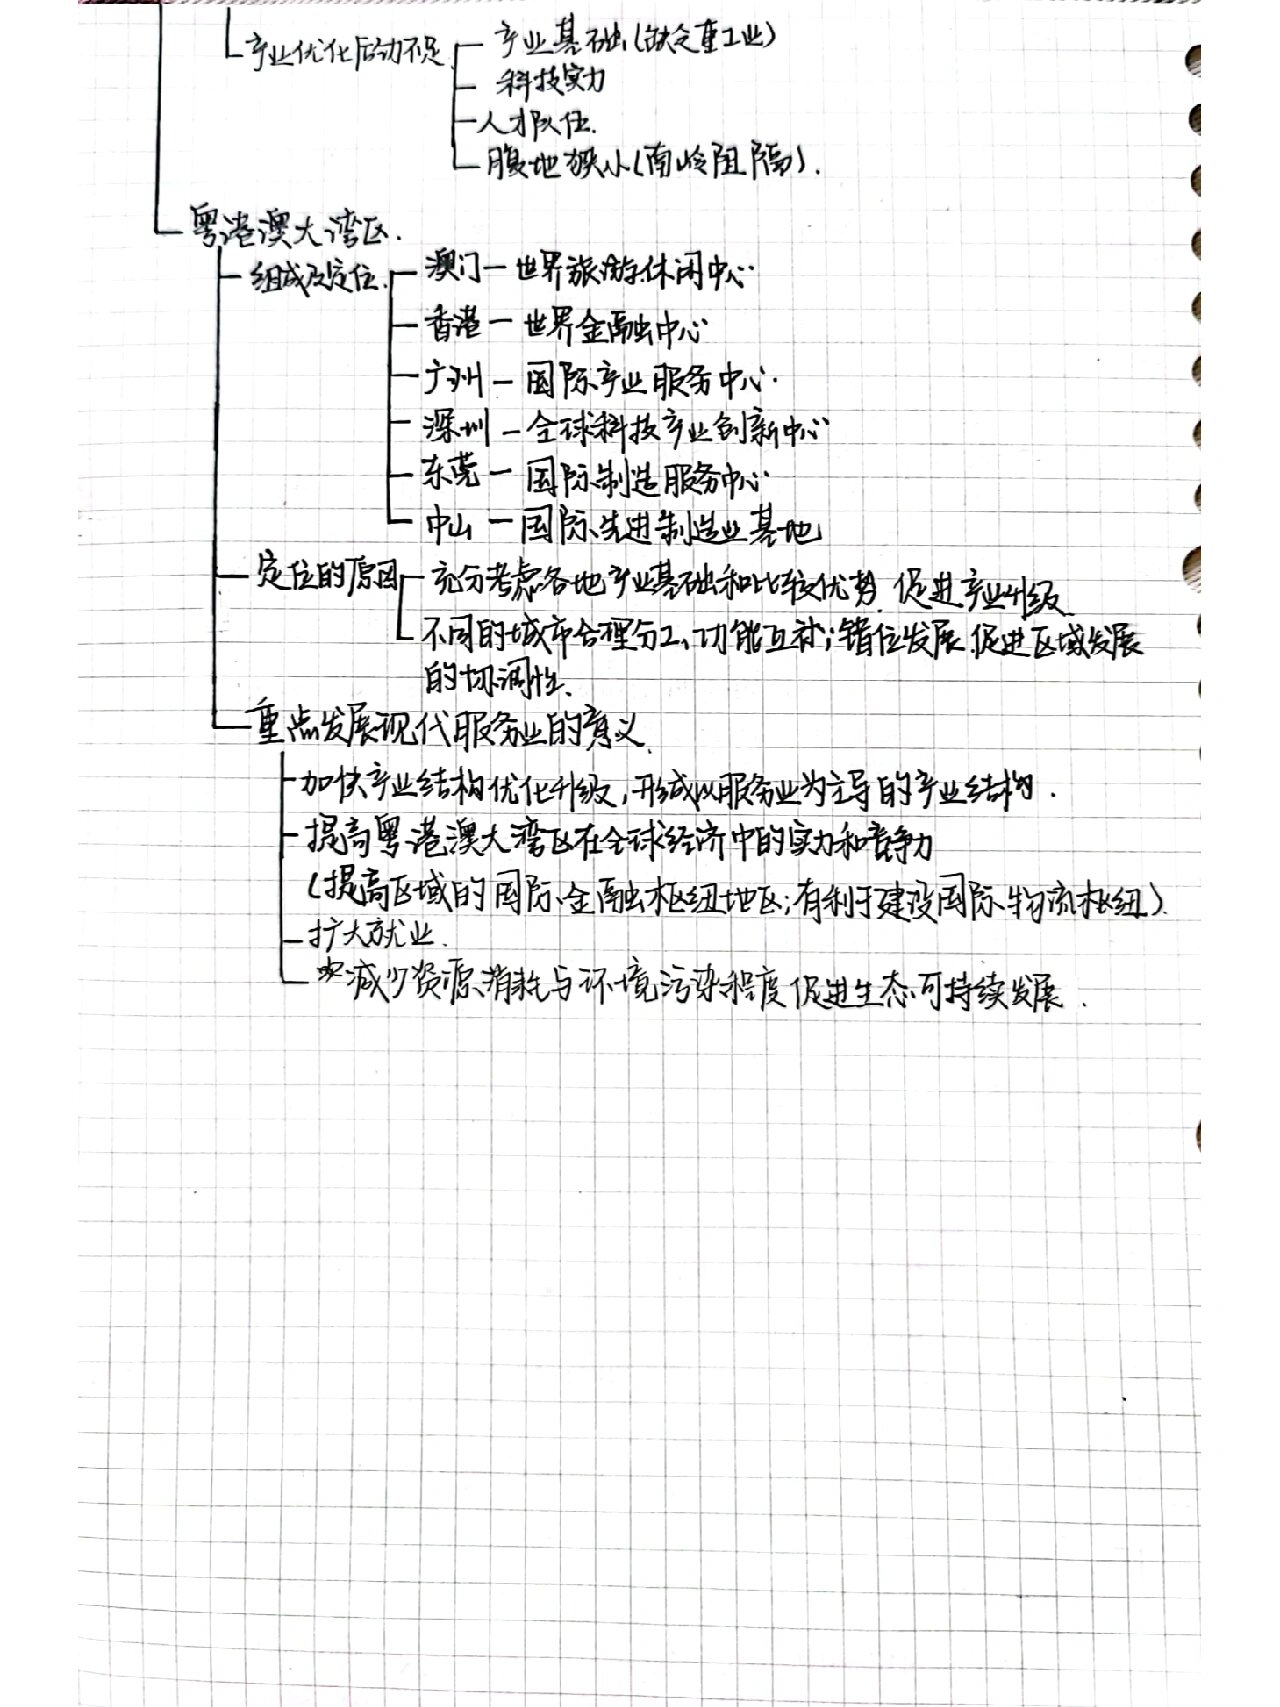 产业优化后劲不足
产业基础(缺乏重工业)
科技实力
人才队伍.
腹地狭小(南岭阻隔).
粤港澳大湾区.
组成及定位.
澳门－世界旅游休闲中心.
香港－世界金融中心
广州－国际产业服务中心.
深圳－全球科技产业创新中心
东莞－国际制造服务中心.
中山－国际先进制造业基地
定位的原因
充分考虑各地产业基础和比较优势.促进产业升级.
不同的城市合理分工、功能互补;错位发展.促进区域发展
的协调性.
重点发展现代服务业的意义.
加快产业结构优化升级,形成以服务业为主导的产业结构.
提高粤港澳大湾区在全球经济中的实力和竞争力
(提高区域的国际金融枢纽地区;有利于建设国际物流枢纽).
扩大就业.
减少资源消耗与环境污染程度促进生态可持续发展.